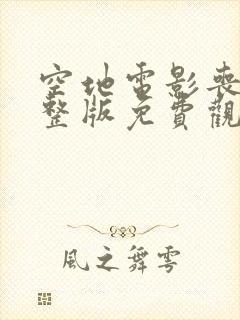 空地電影喪
整版免費觀
風之舞雩